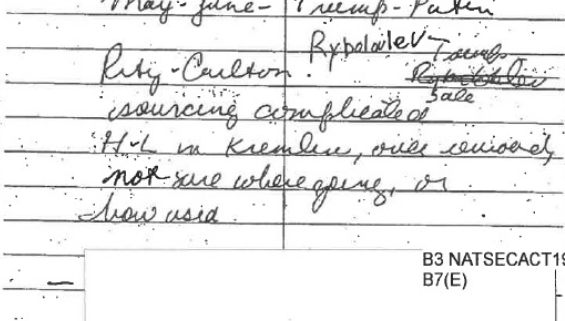 May-June- Trump-Putin
Rybolovlev- Trump
Sale
Ritz-Carlton.
sourcing complicated
H-L in Kremlin, once removed,
not sure where going, or
how used
B3 NATSECACT19
B7(E)